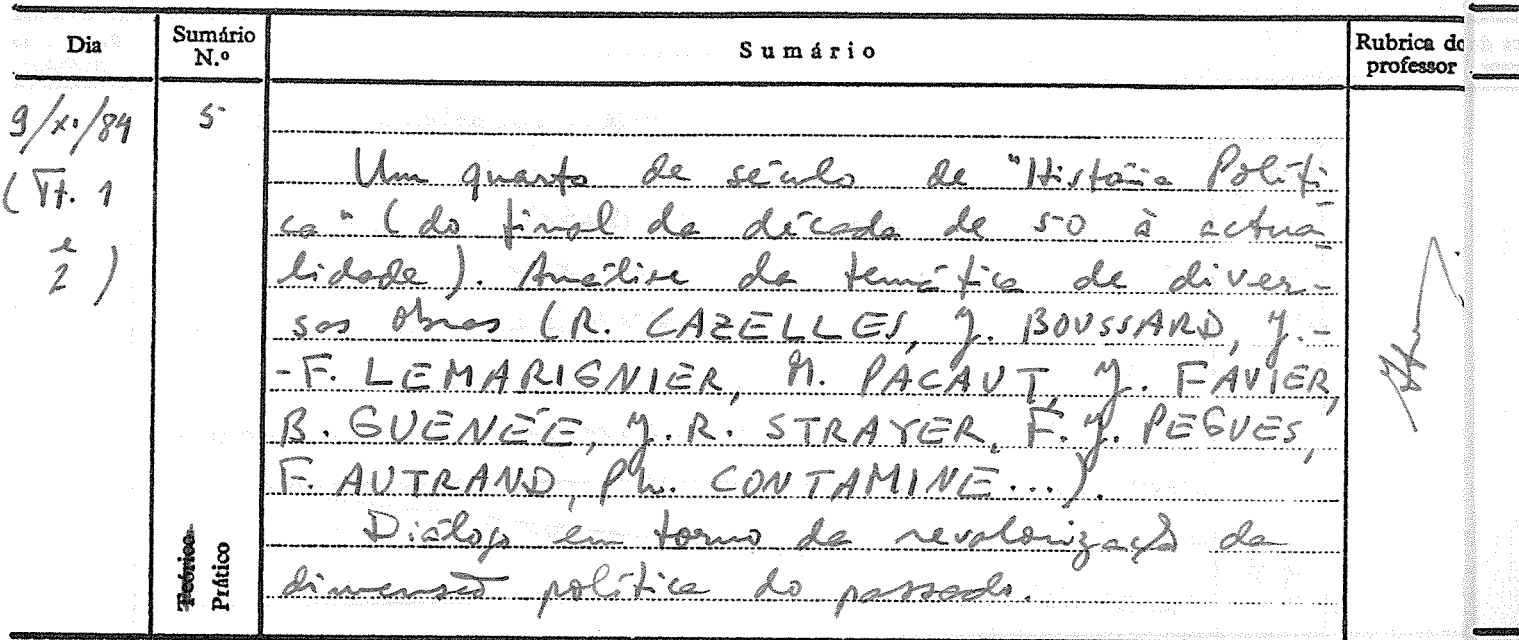 Dia
Sumário N.º
Sumário
Rubrica do professor
9/XI/84
5
(Tt. 1
e
2)
Um quarto de século de "História Políti-
ca" (do final da década de 50 à actua-
lidade). Análise da temática de diver-
sas obras (R. CAZELLES, J. BOUSSARD, J.-
-F. LEMARIGNIER, M. PACAUT, J. FAVIER,
B. GUENÉE, J. R. STRAYER, F. J. PEGUES,
F. AUTRAND, Ph. CONTAMINE...).
Diálogo em torno da revalorização da
dimensão política do passado.
Teórico
Prático